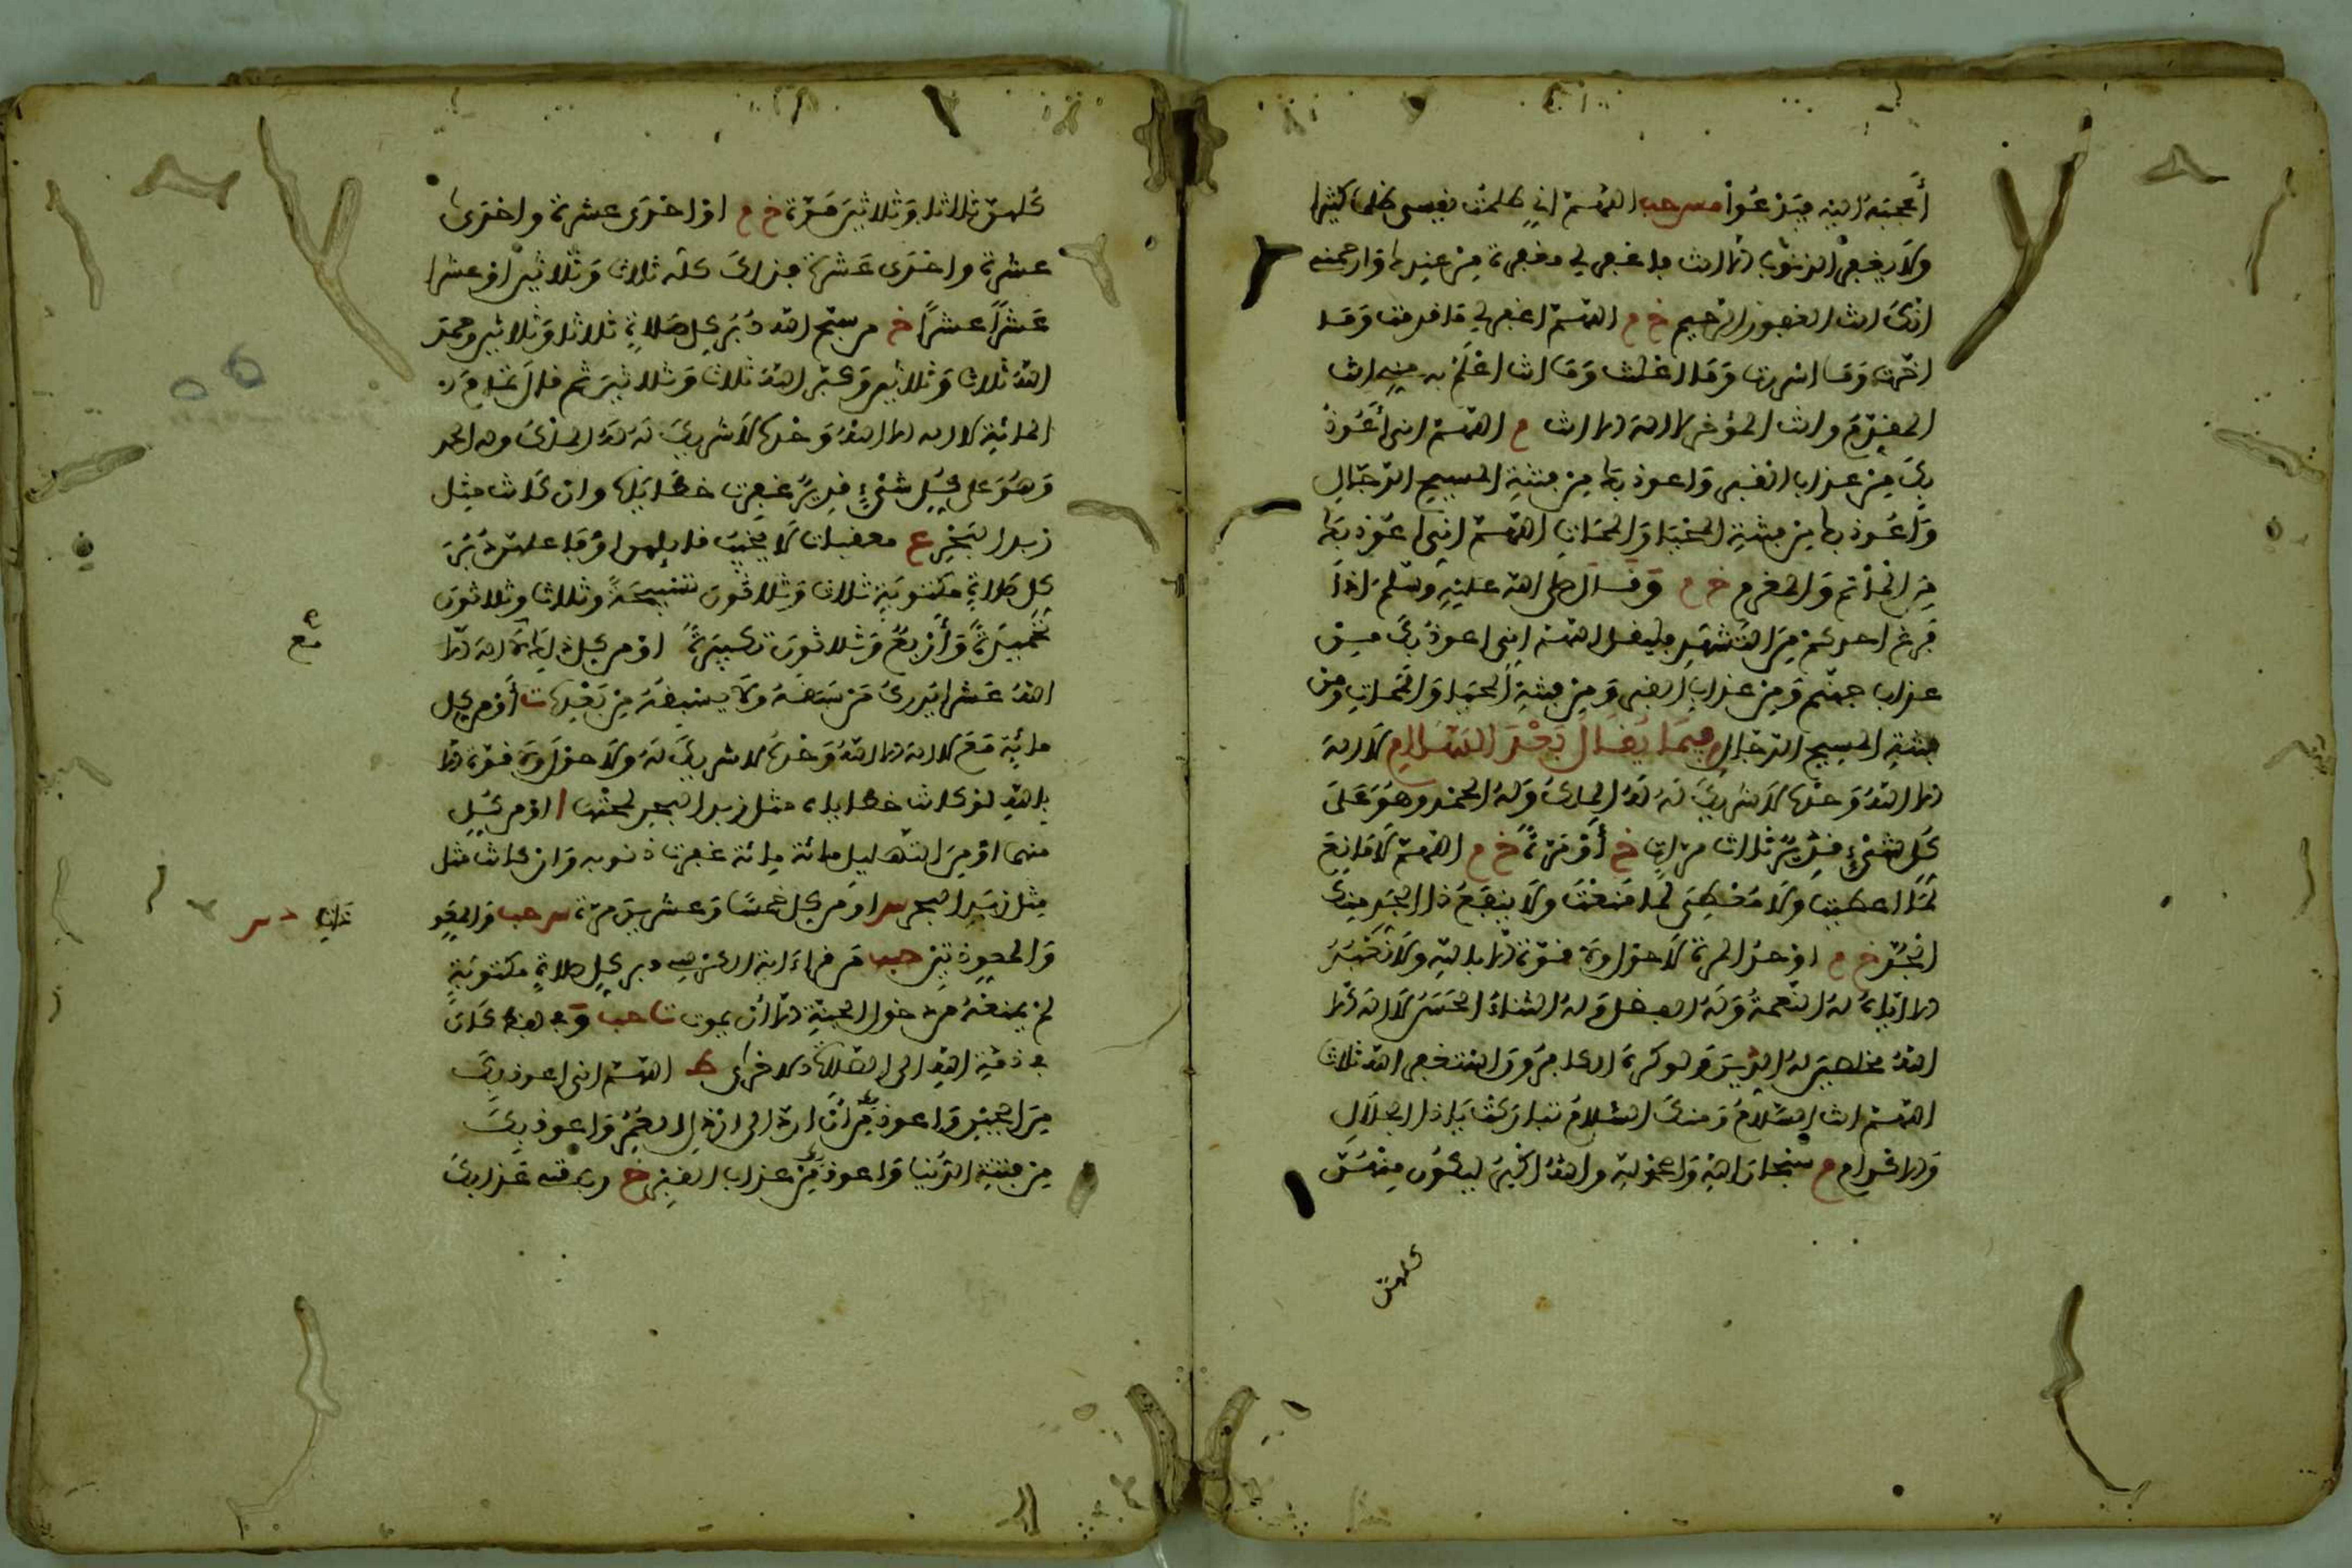 أعجبه اليه فيدعوا مس حب اللهم اني ظلمت نفسي ظلما كثيرا
ولا يغفر الذنوب الا انت فاغفر لي مغفرة من عندك وارحمني
انك انت الغفور الرحيم خ م اللهم اغفر لي ما قدمت وما
اخرت وما اسررت وما اعلنت وما انت اعلم به مني انت
المقدم وانت المؤخر لا اله الا انت م اللهم اني أعوذ
بك من عذاب القبر واعوذ بك من فتنة المسيح الدجال
واعوذ بك من فتنة المحيا والممات اللهم اني اعوذ بك
من المأثم والمغرم خ م وقال صلى الله عليه وسلم اذا
فرغ احدكم من التشهد فليقل اللهم اني اعوذ بك من
عذاب جهنم ومن عذاب القبر ومن فتنة المحيا والممات ومن
فتنة المسيح الدجال م فيما يقال بعد السلام لا اله
الا الله وحده لا شريك له له الملك وله الحمد وهو على
كل شيء قدير ثلاث مرات خ أو مرة خ م اللهم لا مانع
لما اعطيت ولا معطي لما منعت ولا ينفع ذا الجد منك
الجد خ م او حد المرة لا حول ولا قوة الا بالله ولا نعبد
الا اياه له النعمة وله الفضل وله الثناء الحسن لا اله الا
الله مخلصين له الدين ولو كره الكافرون استغفر الله ثلاث
اللهم انت السلام ومنك السلام تباركت يا ذا الجلال
والاكرام م سبحان الله والحمد لله والله اكبر ليكون منهن
كلهن
كلهن ثلاثا وثلاثين مرة خ م او احدى عشرة واحدى
عشرة واحدى عشرة فذلك كله ثلاث وثلاثين او عشرا
عشرا عشرا خ من سبح الله دبر كل صلاة ثلاثا وثلاثين وحمد
الله ثلاث وثلاثين وكبر الله ثلاث وثلاثين ثم قال تمام
المائة لا اله الا الله وحده لا شريك له له الملك وله الحمد
وهو على كل شيء قدير غفرت خطاياه وان كانت مثل
زبد البحر ع معقبات لا يخيب قائلهن او فاعلهن دبر
كل صلاة مكتوبة ثلاث وثلاثون تسبيحة وثلاثا وثلاثون
تحميدة وأربع وثلاثون تكبيرة او من كل ذلك لا اله الا
الله عشرا يدرك من سبقه ولا يسبقه من بعده ت أو من كل
مائة مع لا اله الا الله وحده لا شريك له ولا حول ولا قوة الا
بالله لو كانت خطاياه مثل زبد البحر لمحتها ا او من كل
منها او من التهليل مائة مائة غفرت ذنوبه وان كانت مثل
مثل زبد البحر س او من كل خمسا وعشرين مرة س حب
والمعوذتين حب من قراءة اية الكرسي دبر كل صلاة مكتوبة
لم يمنعه من دخول الجنة الا أن يموت حب كان
في ذمة الله الى الصلاة الاخرى ط اللهم اني اعوذ بك
من الجبن واعوذ بك من أن ارد الى ارذل العمر واعوذ بك
من فتنة الدنيا واعوذ بك من عذاب القبر خ رب قني عذابك